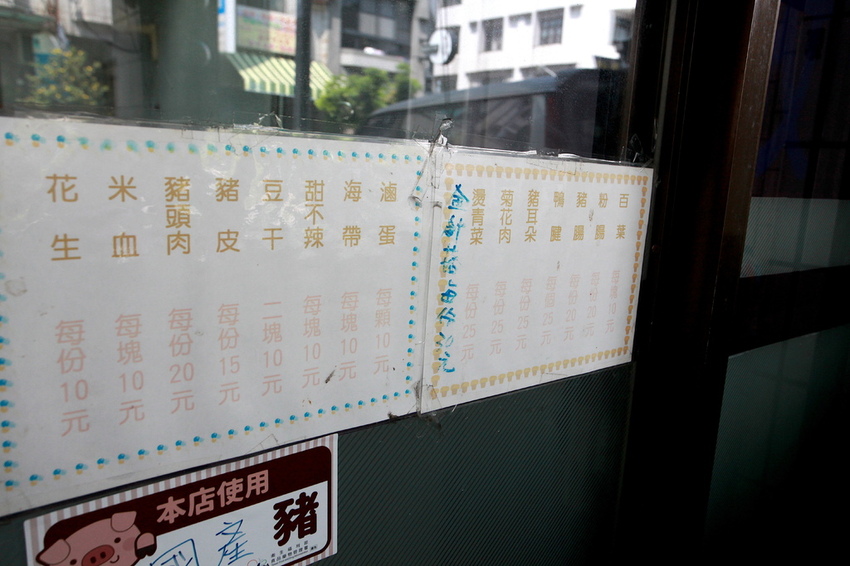 百葉 每塊10元
粉腸 每份20元
豬腸 每份20元
鴨腱 每個25元
豬耳朵 每份25元
菊花肉 每份25元
燙青菜 每份25元
金針菇 每份
滷蛋 每顆10元
海帶 每塊10元
甜不辣 每塊10元
豆干 二塊10元
豬皮 每份15元
豬頭肉 每份20元
米血 每塊10元
花生 每份10元
本店使用
國產 豬